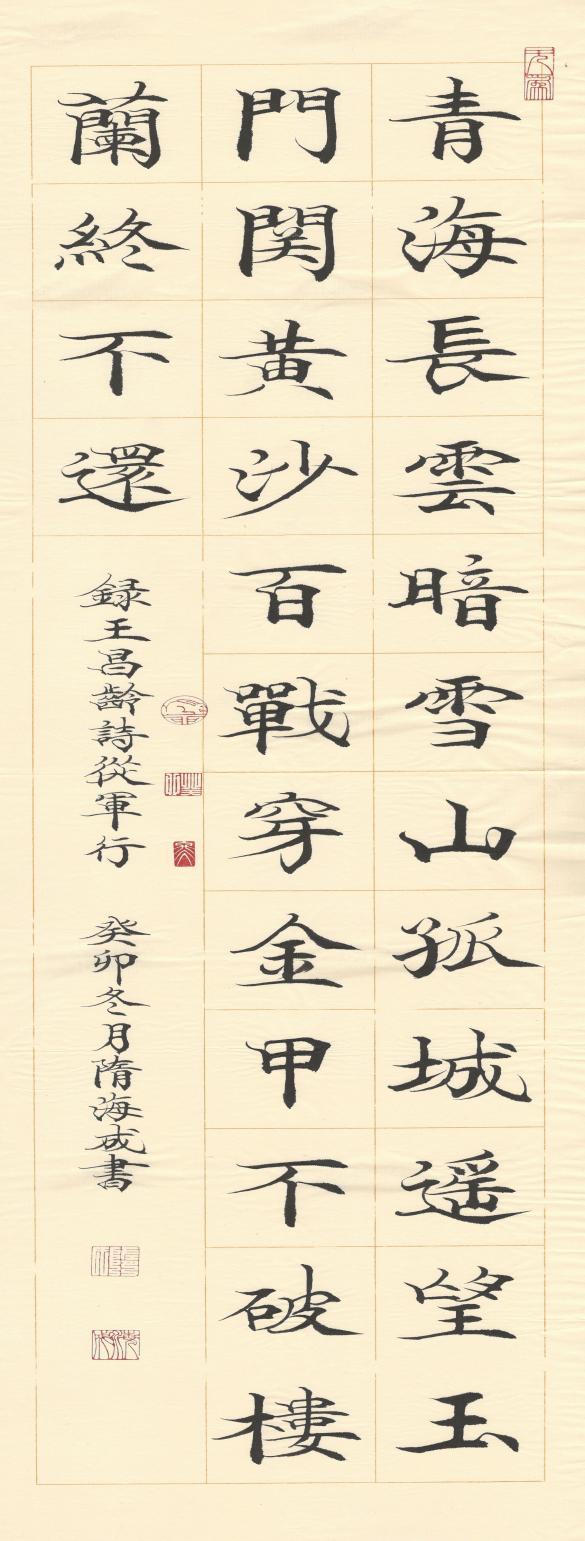 青海長雲暗雪山孤城遥望玉
門関黄沙百戰穿金甲不破樓
蘭終不還
録王昌齡詩從軍行 癸卯冬月隋海成書